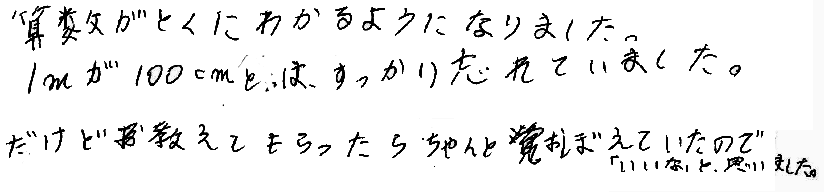 算数がとくにわかるようになりました。
1mが100cmとは、すっかり忘れていました。
だけど教えてもらったらちゃんと覚えていたので
「いいな」と、思いました。